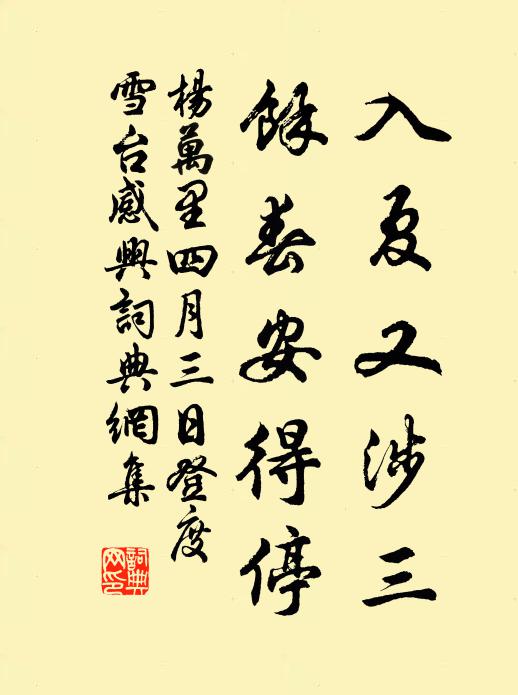 入夏又涉三
餘春安得停
楊萬里四月三日登度
雪台感興詞典網集
詞典網印